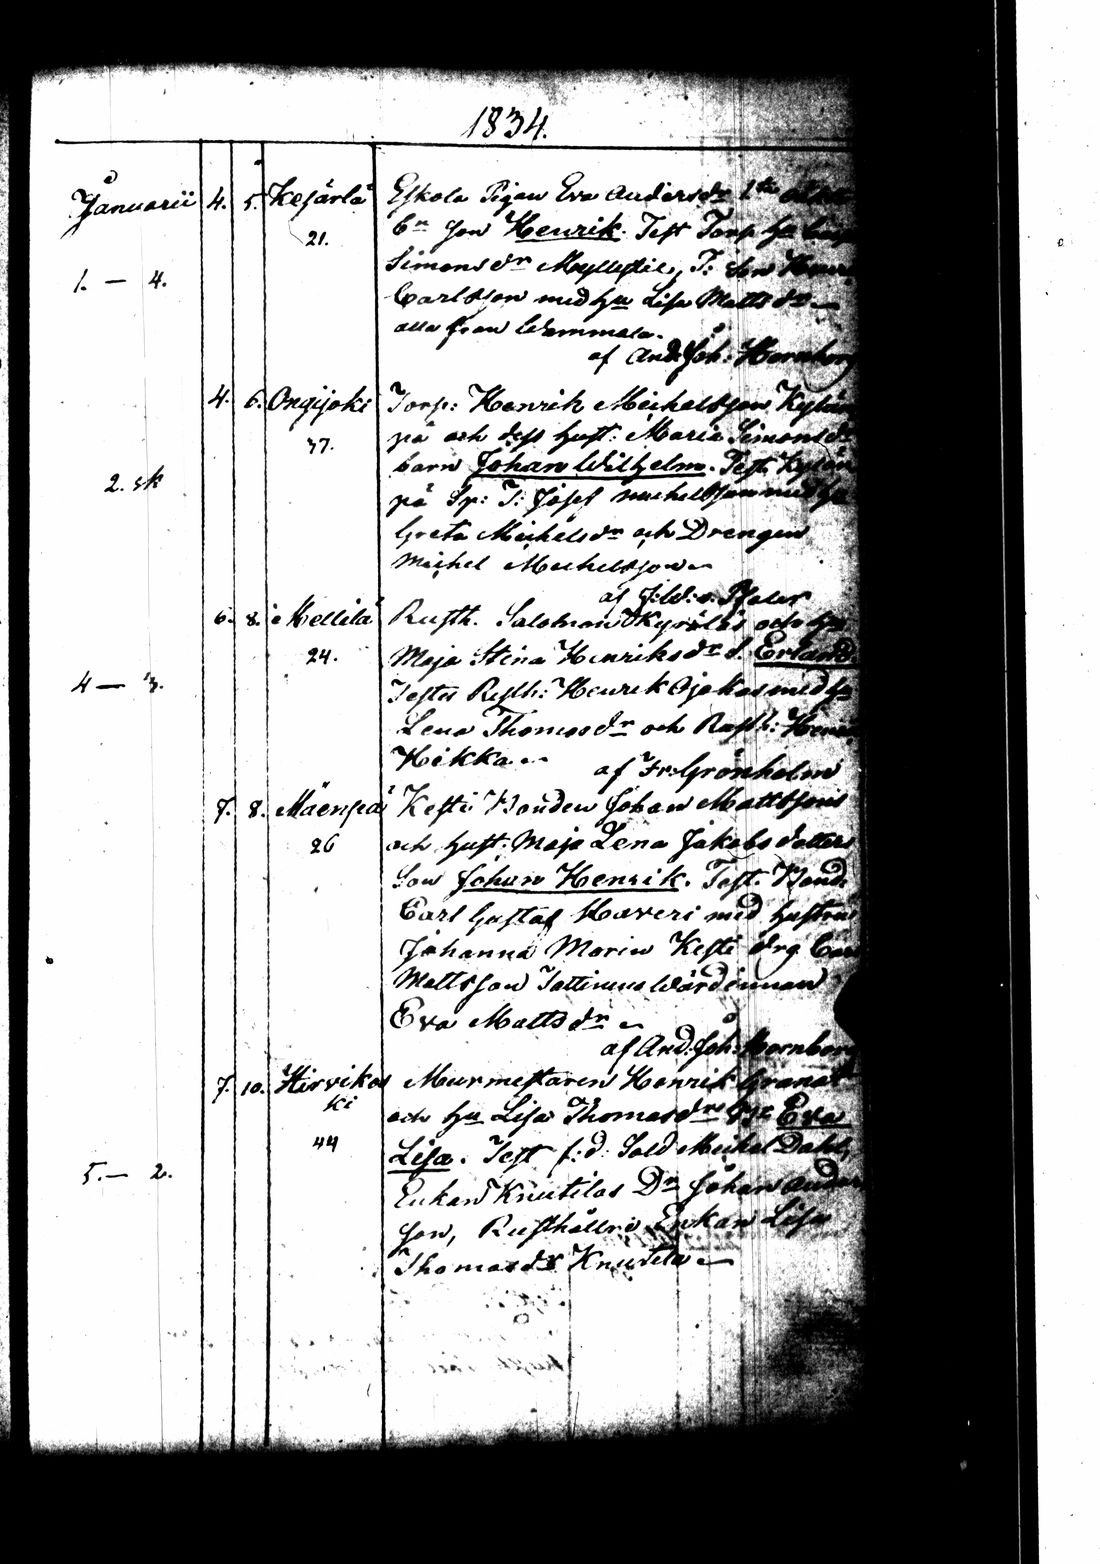 1834.
Januarii 4. 5. Kejärlä Eskola Pigan Eva Andersdr 1ta
21. br Son Henrik. Test Torp hu
1. — 4. Simonsdr T: Son
Carlsson med hu Lisa Mattsdr
alla från Wammala.
af And. Joh: Hornborg
4. 6. Ongijoki Torp: Henrik Michelsson Kylän
37. pä och dess hust: Maria Simonsdr
barn Johan Wilhelm. Test Kylän
2. sk pä Sp: T: Josef Michelsson med hu
Greta Michelsdr och Drengen
Michel Michelsson
af
6. 8. Mellilä Rusth. Salomon Kyrölös och hu
24. Maja Stina Henriksdr S. Erland.
4 — 3. Testes Rusth: Henrik Ojakas med hu
Lena Thomasdr och Rusth: Henrik
Heikka
af Fr: Grönholm
7. 8. Mäenpää Kesti Bonden Johan Mattssons
26 och hust. Maja Lena Jakobsdotters
Son Johan Henrik. Test. Bond.
Carl Gustaf Haveri med hustru
Johanna Maria Kesti drg Carl
Mattsson Wärdinnan
Eva Mattsdr
af And: Joh: Hornborg
7. 10. Hirvikos Murmestaren Henrik Granat
ki och hu Lisa Thomasdrs Eva
44 Lisa. Test f:d: Sold Michel Dahl,
5. — 2. Enkan Knutilas Dr Johan Anders
son, Rusthålls Enkan Lisa
Thomasdr Knutila